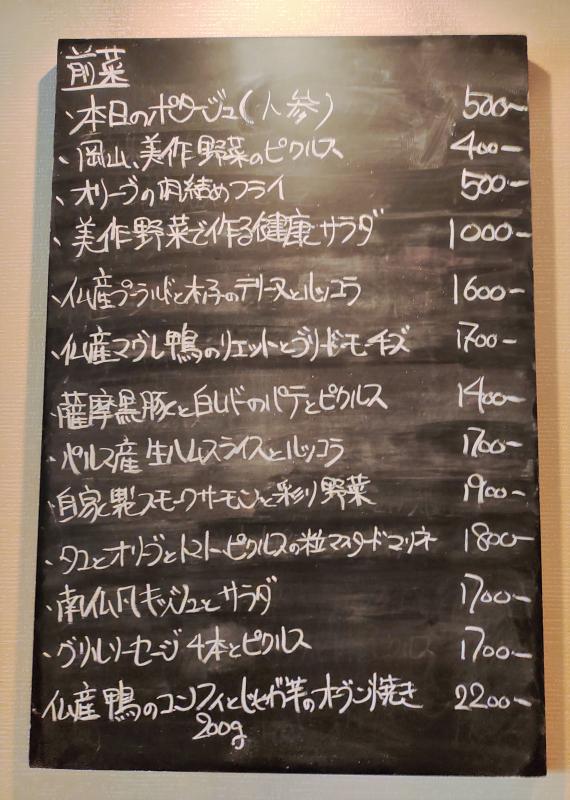 前菜
・本日のポタージュ(人参) 500-
・岡山、美作野菜のピクルス 400-
・オリーブの肉詰めフライ 500-
・美作野菜で作る健康サラダ 1000-
・仏産プーラルドと木の子のテリーヌとルッコラ 1600-
・仏産マグレ鴨のリエットとブリードモーチーズ 1700-
・薩摩黒豚と白レバーのパテとピクルス 1400-
・パルマ産生ハムスライスとルッコラ 1700-
・自家製スモークサーモンと彩り野菜 1900-
・タコとオリーブとトマトピクルスの粒マスタードマリネ 1800-
・南仏風キッシュとサラダ 1700-
・グリルソーセージ4本とピクルス 1700-
仏産鴨のコンフィとじゃが芋のオーブン焼き 2200-
200g